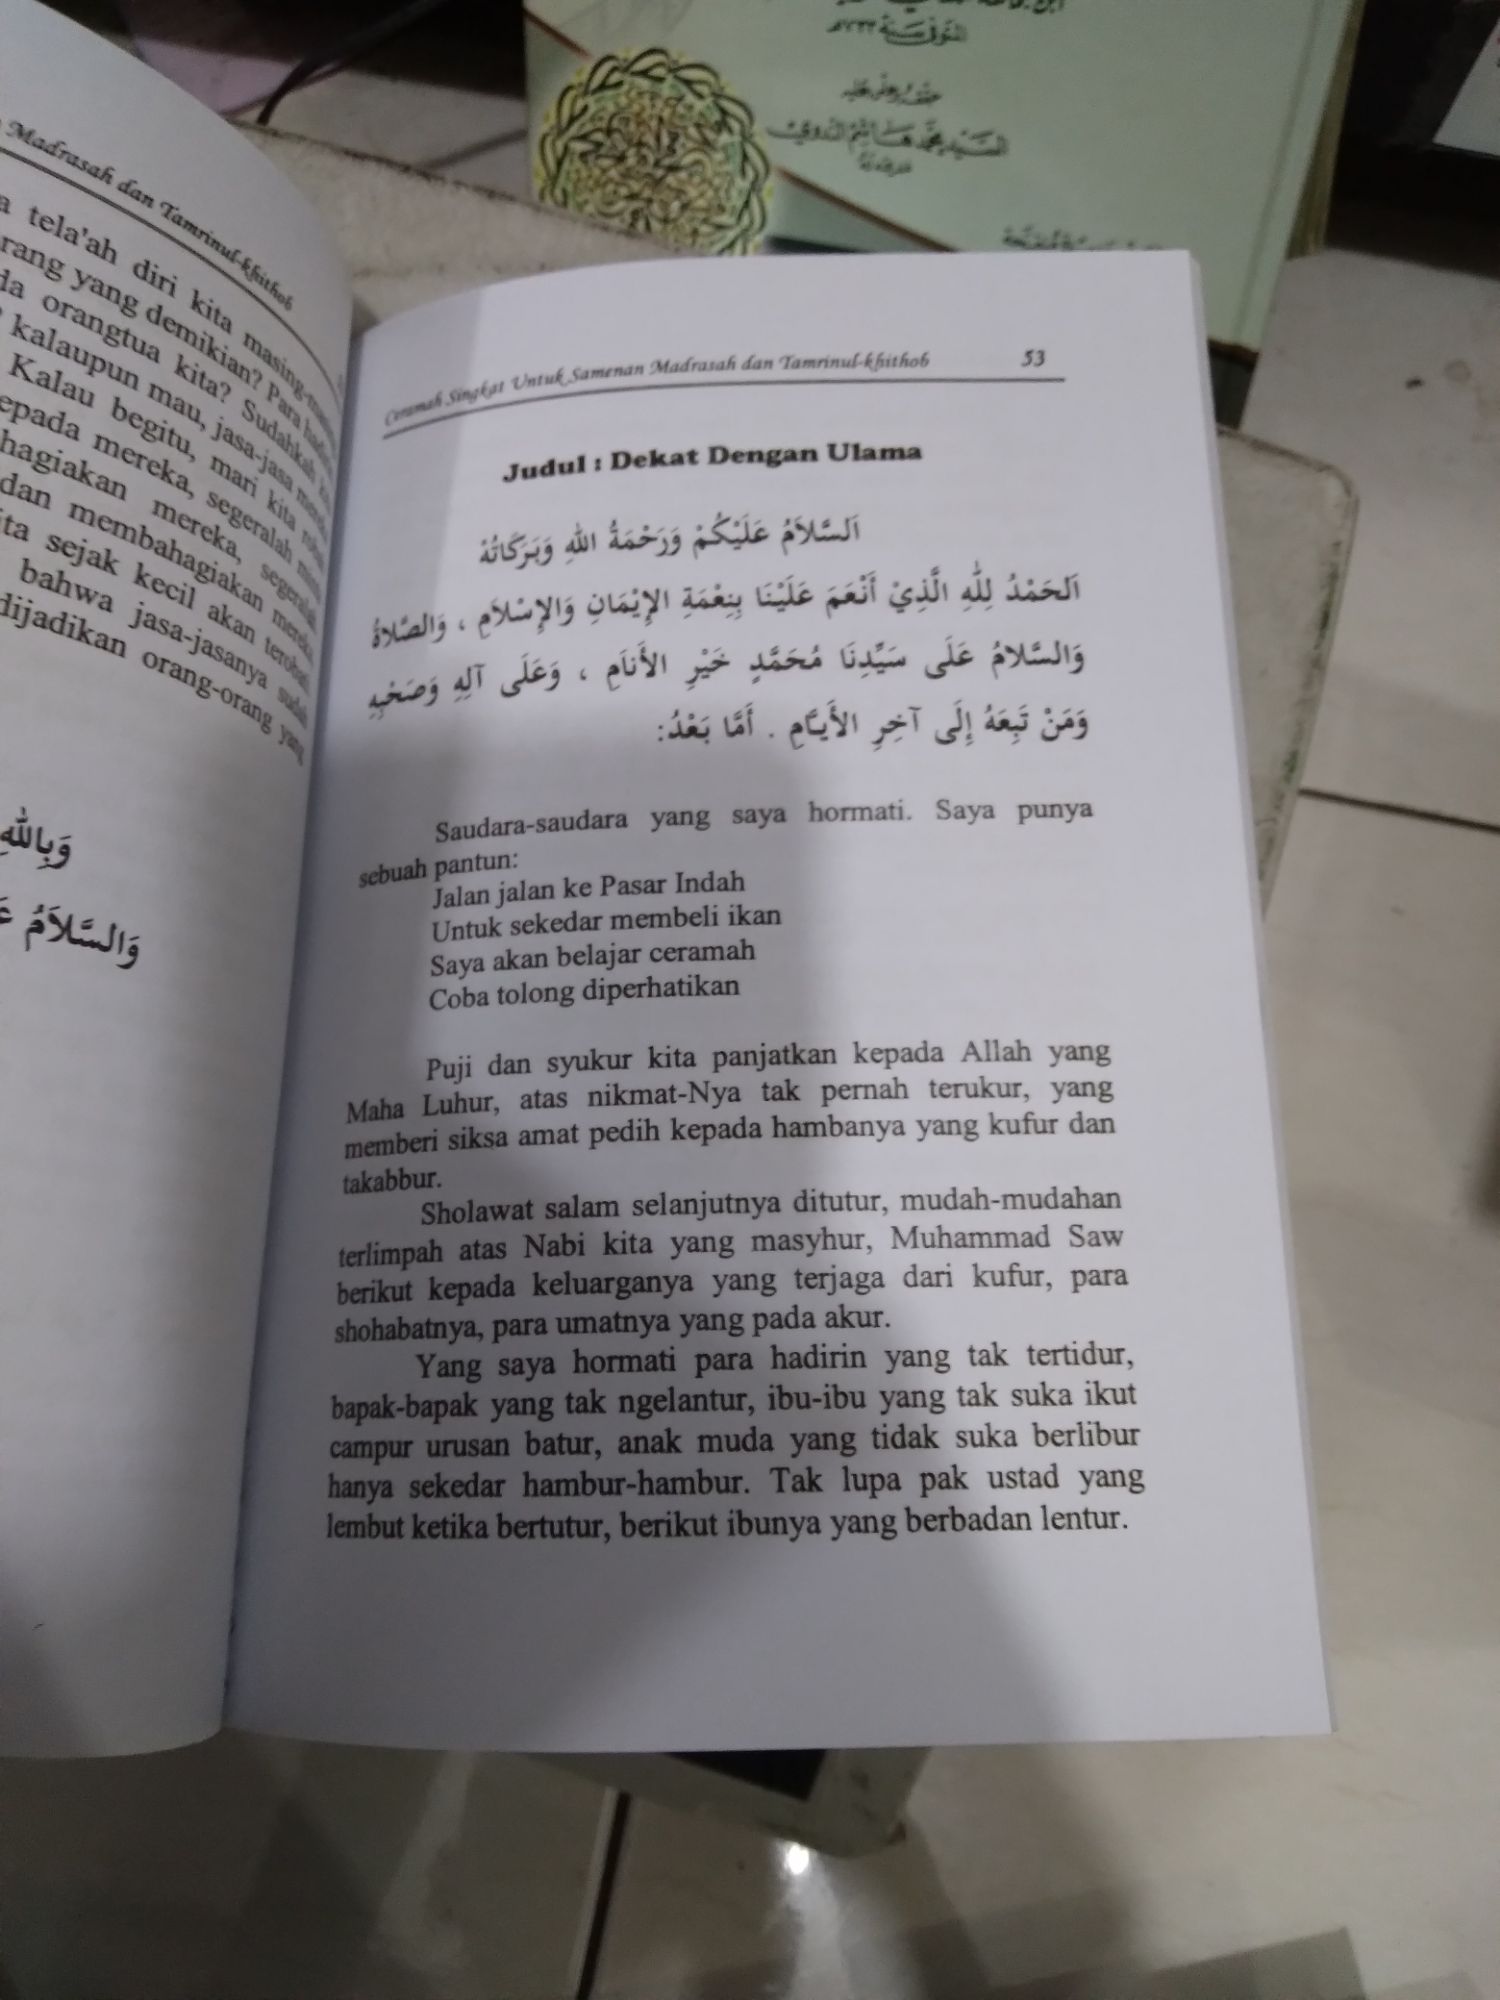 المتوفى سنة ٧٣٣هـ
السيد محمد هاشم الندوي
Madrasah dan Tamrinul-khithob
tela'ah diri kita
yang demikian? Para
orangtua kita? Sudahkah
kalaupun mau, jasa-jasa
Kalau begitu, mari kita
kepada mereka, segeralah
mereka, segeralah
dan membahagiakan
sejak kecil akan
bahwa jasa-jasanya sudah
dijadikan orang-orang yang
وَبِاللهِ
وَالسَّلاَمُ
Ceramah Singkat Untuk Samenan Madrasah dan Tamrinul-khithob 53
Judul : Dekat Dengan Ulama
اَلسَّلاَمُ عَلَيْكُمْ وَرَحْمَةُ اللهِ وَبَرَكَاتُهُ
اَلحَمْدُ لِلّٰهِ الَّذِيْ أَنْعَمَ عَلَيْنَا بِنِعْمَةِ الإِيْمَانِ وَالإِسْلاَمِ ، وَالصَّلاَةُ
وَالسَّلامُ عَلَى سَيِّدِنَا مُحَمَّدٍ خَيْرِ الأَنَامِ ، وَعَلَى آلِهِ وَصَحْبِهِ
وَمَنْ تَبِعَهُ إِلَى آخِرِ الأَيَّامِ . أَمَّا بَعْدُ:
Saudara-saudara yang saya hormati. Saya punya
sebuah pantun:
Jalan jalan ke Pasar Indah
Untuk sekedar membeli ikan
Saya akan belajar ceramah
Coba tolong diperhatikan
Puji dan syukur kita panjatkan kepada Allah yang
Maha Luhur, atas nikmat-Nya tak pernah terukur, yang
memberi siksa amat pedih kepada hambanya yang kufur dan
takabbur.
Sholawat salam selanjutnya ditutur, mudah-mudahan
terlimpah atas Nabi kita yang masyhur, Muhammad Saw
berikut kepada keluarganya yang terjaga dari kufur, para
shohabatnya, para umatnya yang pada akur.
Yang saya hormati para hadirin yang tak tertidur,
bapak-bapak yang tak ngelantur, ibu-ibu yang tak suka ikut
campur urusan batur, anak muda yang tidak suka berlibur
hanya sekedar hambur-hambur. Tak lupa pak ustad yang
lembut ketika bertutur, berikut ibunya yang berbadan lentur.